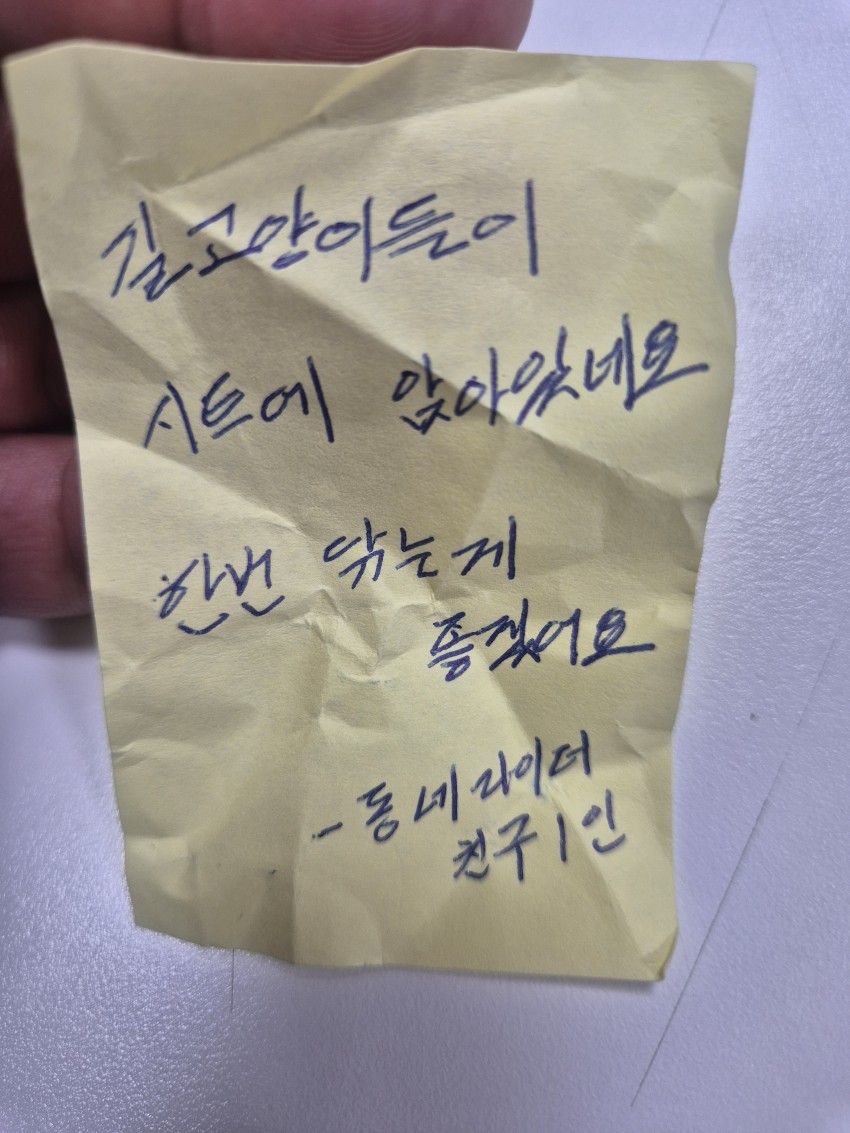 길고양이들이
시트에 앉아있네요
한번 닦는게
좋겠어요
- 동네 라이더
친구 1인